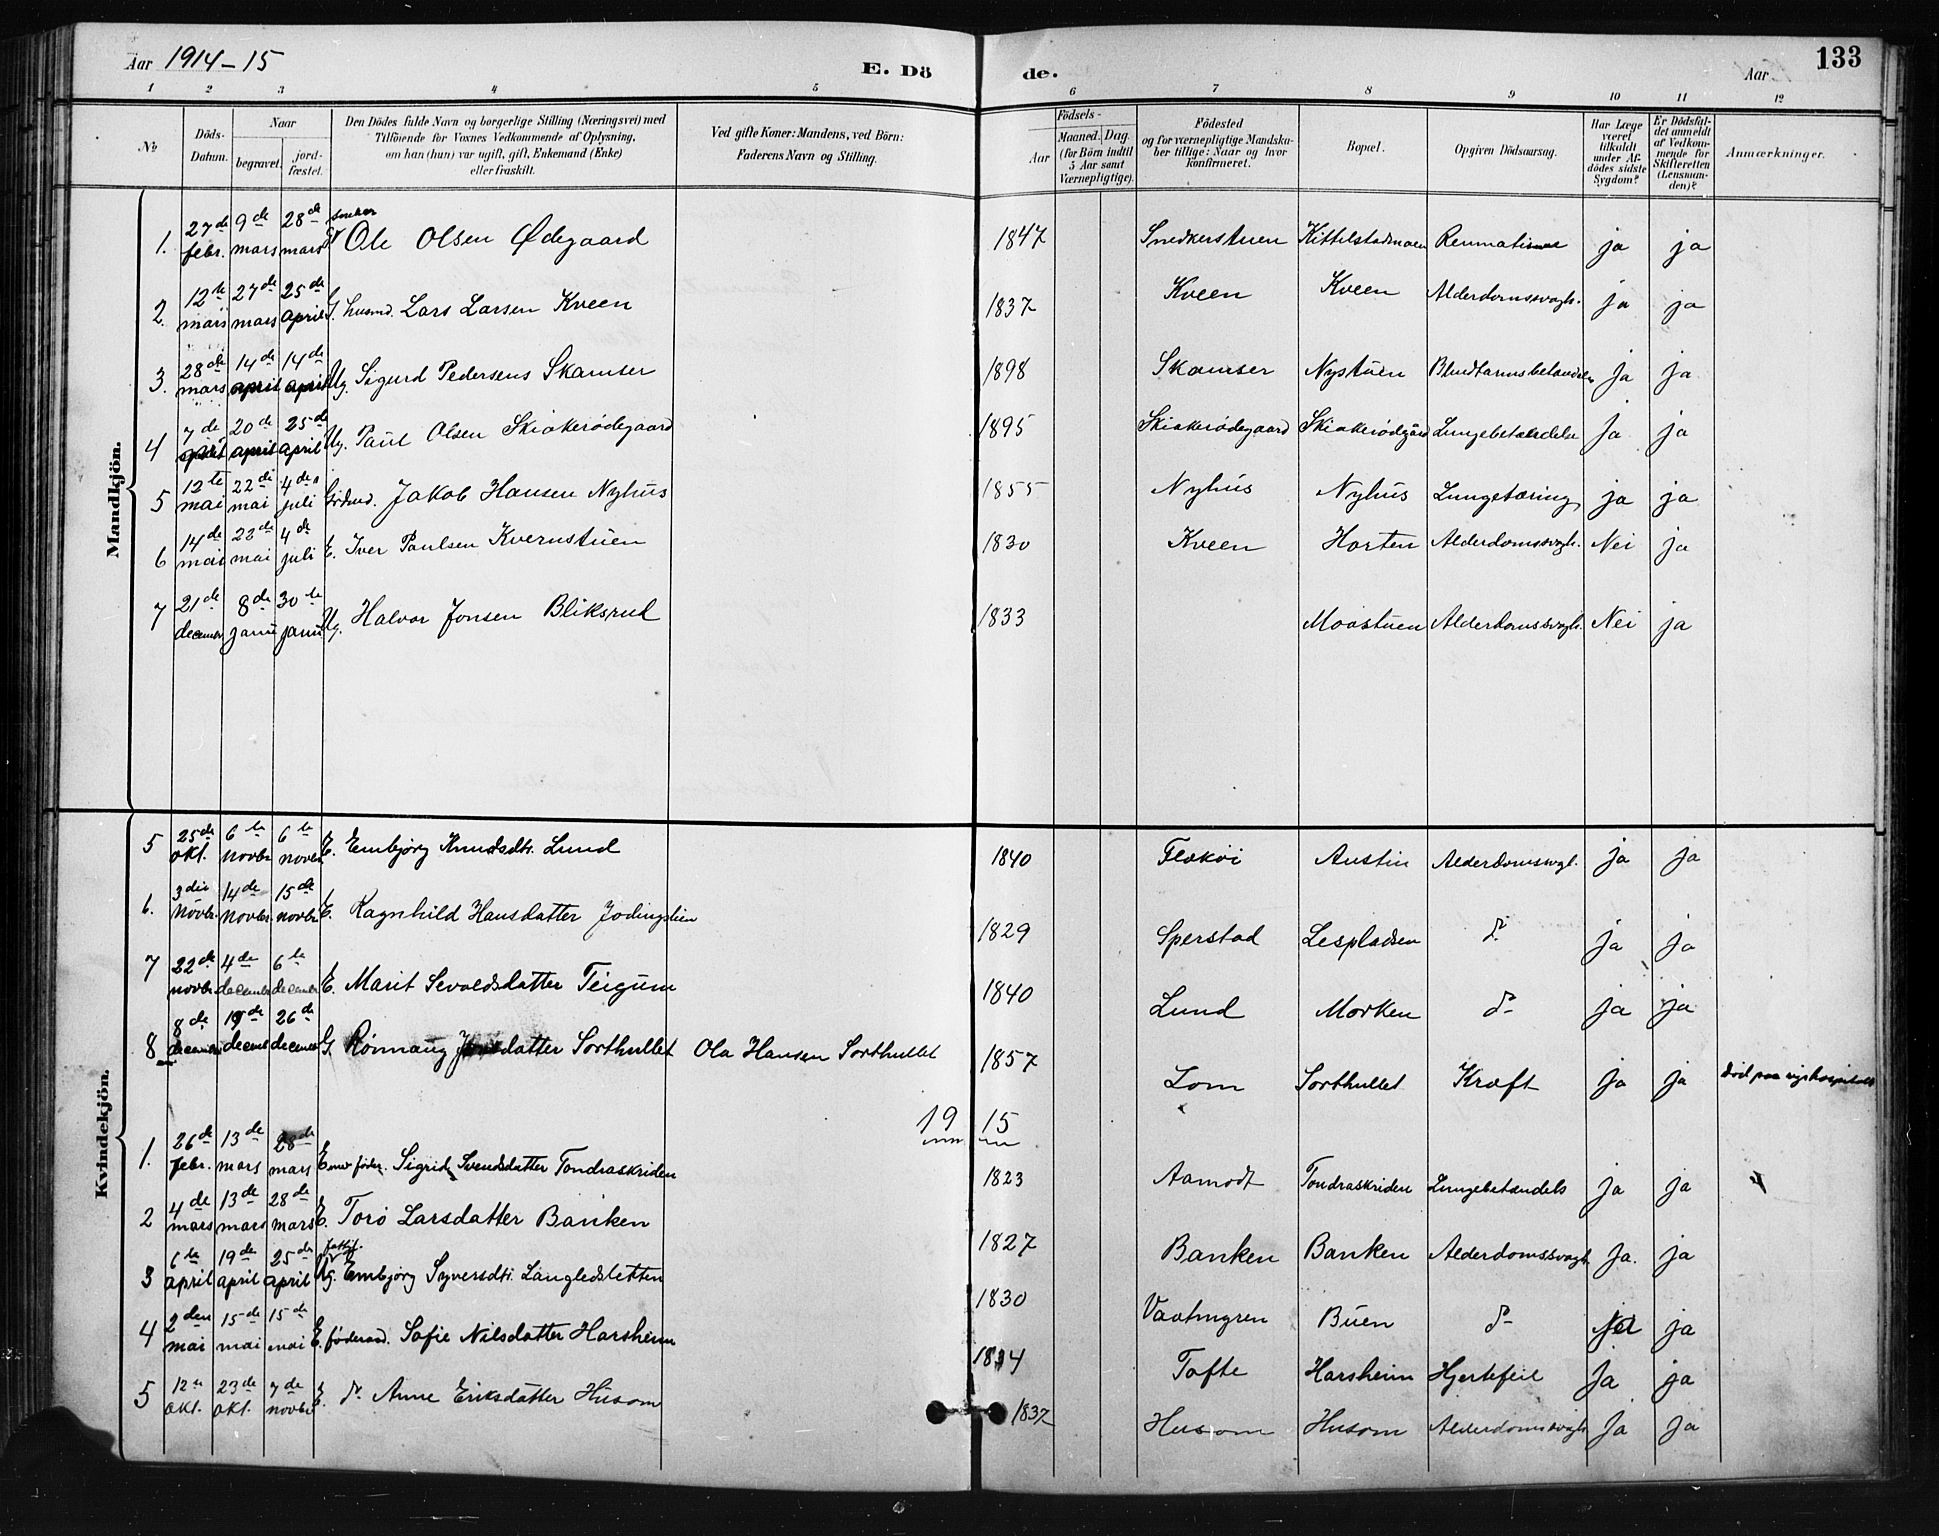 Aar 1914-15 E. Dö de. Aar 133
1 2 3 4 5 6 7 8 9 10 11 12
No
Döds-Datum.
Naar begravet. jordfæstet.
Den Dödes fulde Navn og borgerlige Stilling (Næringsvei) med
Tilföiende for Voxnes Vedkommende af Oplysning,
om han (hun) var ugift, gift, Enkemand (Enke)
eller fraskilt.
Ved gifte Koner: Mandens, ved Börn:
Faderens Navn og Stilling.
Födsels-
Aar Maaned. Dag.
(for Börn indtil
5 Aar samt
Værnepligtige).
Födested
og for værnepligtige Mandskaber tillige: Naar og hvor
konfirmeret.
Bopæl.
Opgiven Dödsaarsag.
Har Læge
været
tilkaldt
under Afdödes sidste
Sygdom?
Er Dödsfaldet anmeldt
af Vedkommende for
Skifteretten
(Lensmanden)?
Anmærkninger.
Mandkjön.
1. 27de febr. 9de mars 28de mars Ole Olsen Ødegaard 1847 Snedkerstuen Kittelstadmoen ja ja
2. 12te mars 27de mars 25de april G. husmd. Lars Larsen Kveen 1837 Kveen Kveen Alderdomssvagh. ja ja
3. 28de mars 14de april 14de april Ug. Sigurd Pedersens Skamser 1898 Skamser Nystuen Blindtarmsbetændelse ja ja
4 7de april 20de april 25de april Ug. Paul Olsen Skiakerødegaard 1895 Skiakerødegaard Skiakerødgård Lungebetændelse ja ja
5 12te mai 22de mai 4de juli Gårdmd. Jakob Hansen Nyhus 1855 Nyhus Nyhus Lungetæring ja ja
6 14de mai 22de mai 4de juli E. Iver Paulsen Kvernstuen 1830 Kveen Horten Alderdomssvagh. Nei ja
7 21de december 8de janu 30te janu Ug. Halvor Jonsen Bliksrud 1833 Moastuen Alderdomssvagh. Nei ja
Kvindekjön.
5 25de okt. 6te novbr 6te novbr E. Embjørg Knudsdtr. Lund 1840 Flækøi Austin Alderdomssvagh. ja ja
6. 3die Novbr. 14de Novbr. 15de novbr E. Ragnhild Hansdatter Jodingslien 1829 Sperstad Lespladsen do ja ja
7 22de novbr. 4de december 6te december E. Marit Sevaldsdatter Teigum 1840 Lund Morken do ja ja
8 8de december 19de december 26de december G. Rønnaug datter Sorthullet Ola Hansen Sorthullet 1857 Lom Sorthullet Kræft ja ja død paa rigshospitalet
19 15
1. 26de febr. 13de mars 28de mars E Sigrid Svendsdatter Tondraskriden 1823 Aamodt Tondraskriden Lungebetændels ja ja
2 4de mars 13de mars 28de mars E. Toro Larsdatter Banken 1827 Banken Banken Alderdomssvagh. ja. ja
3 6te april 19de april 25de april fattigl. Ug. Embjørg Syversdtr. Langledsletten 1830 Buen do ja ja
4 2den mai 15de mai 15de mai E. føderaad. Sofie Nilsdatter Harsheim 1834 Tofte Harsheim Hjertefeil ja ja
5 12te okt. 23de okt. 7de novbr E do Anne Eriksdatter Husom 1837 Husom Husom Alderdomssvagh ja ja